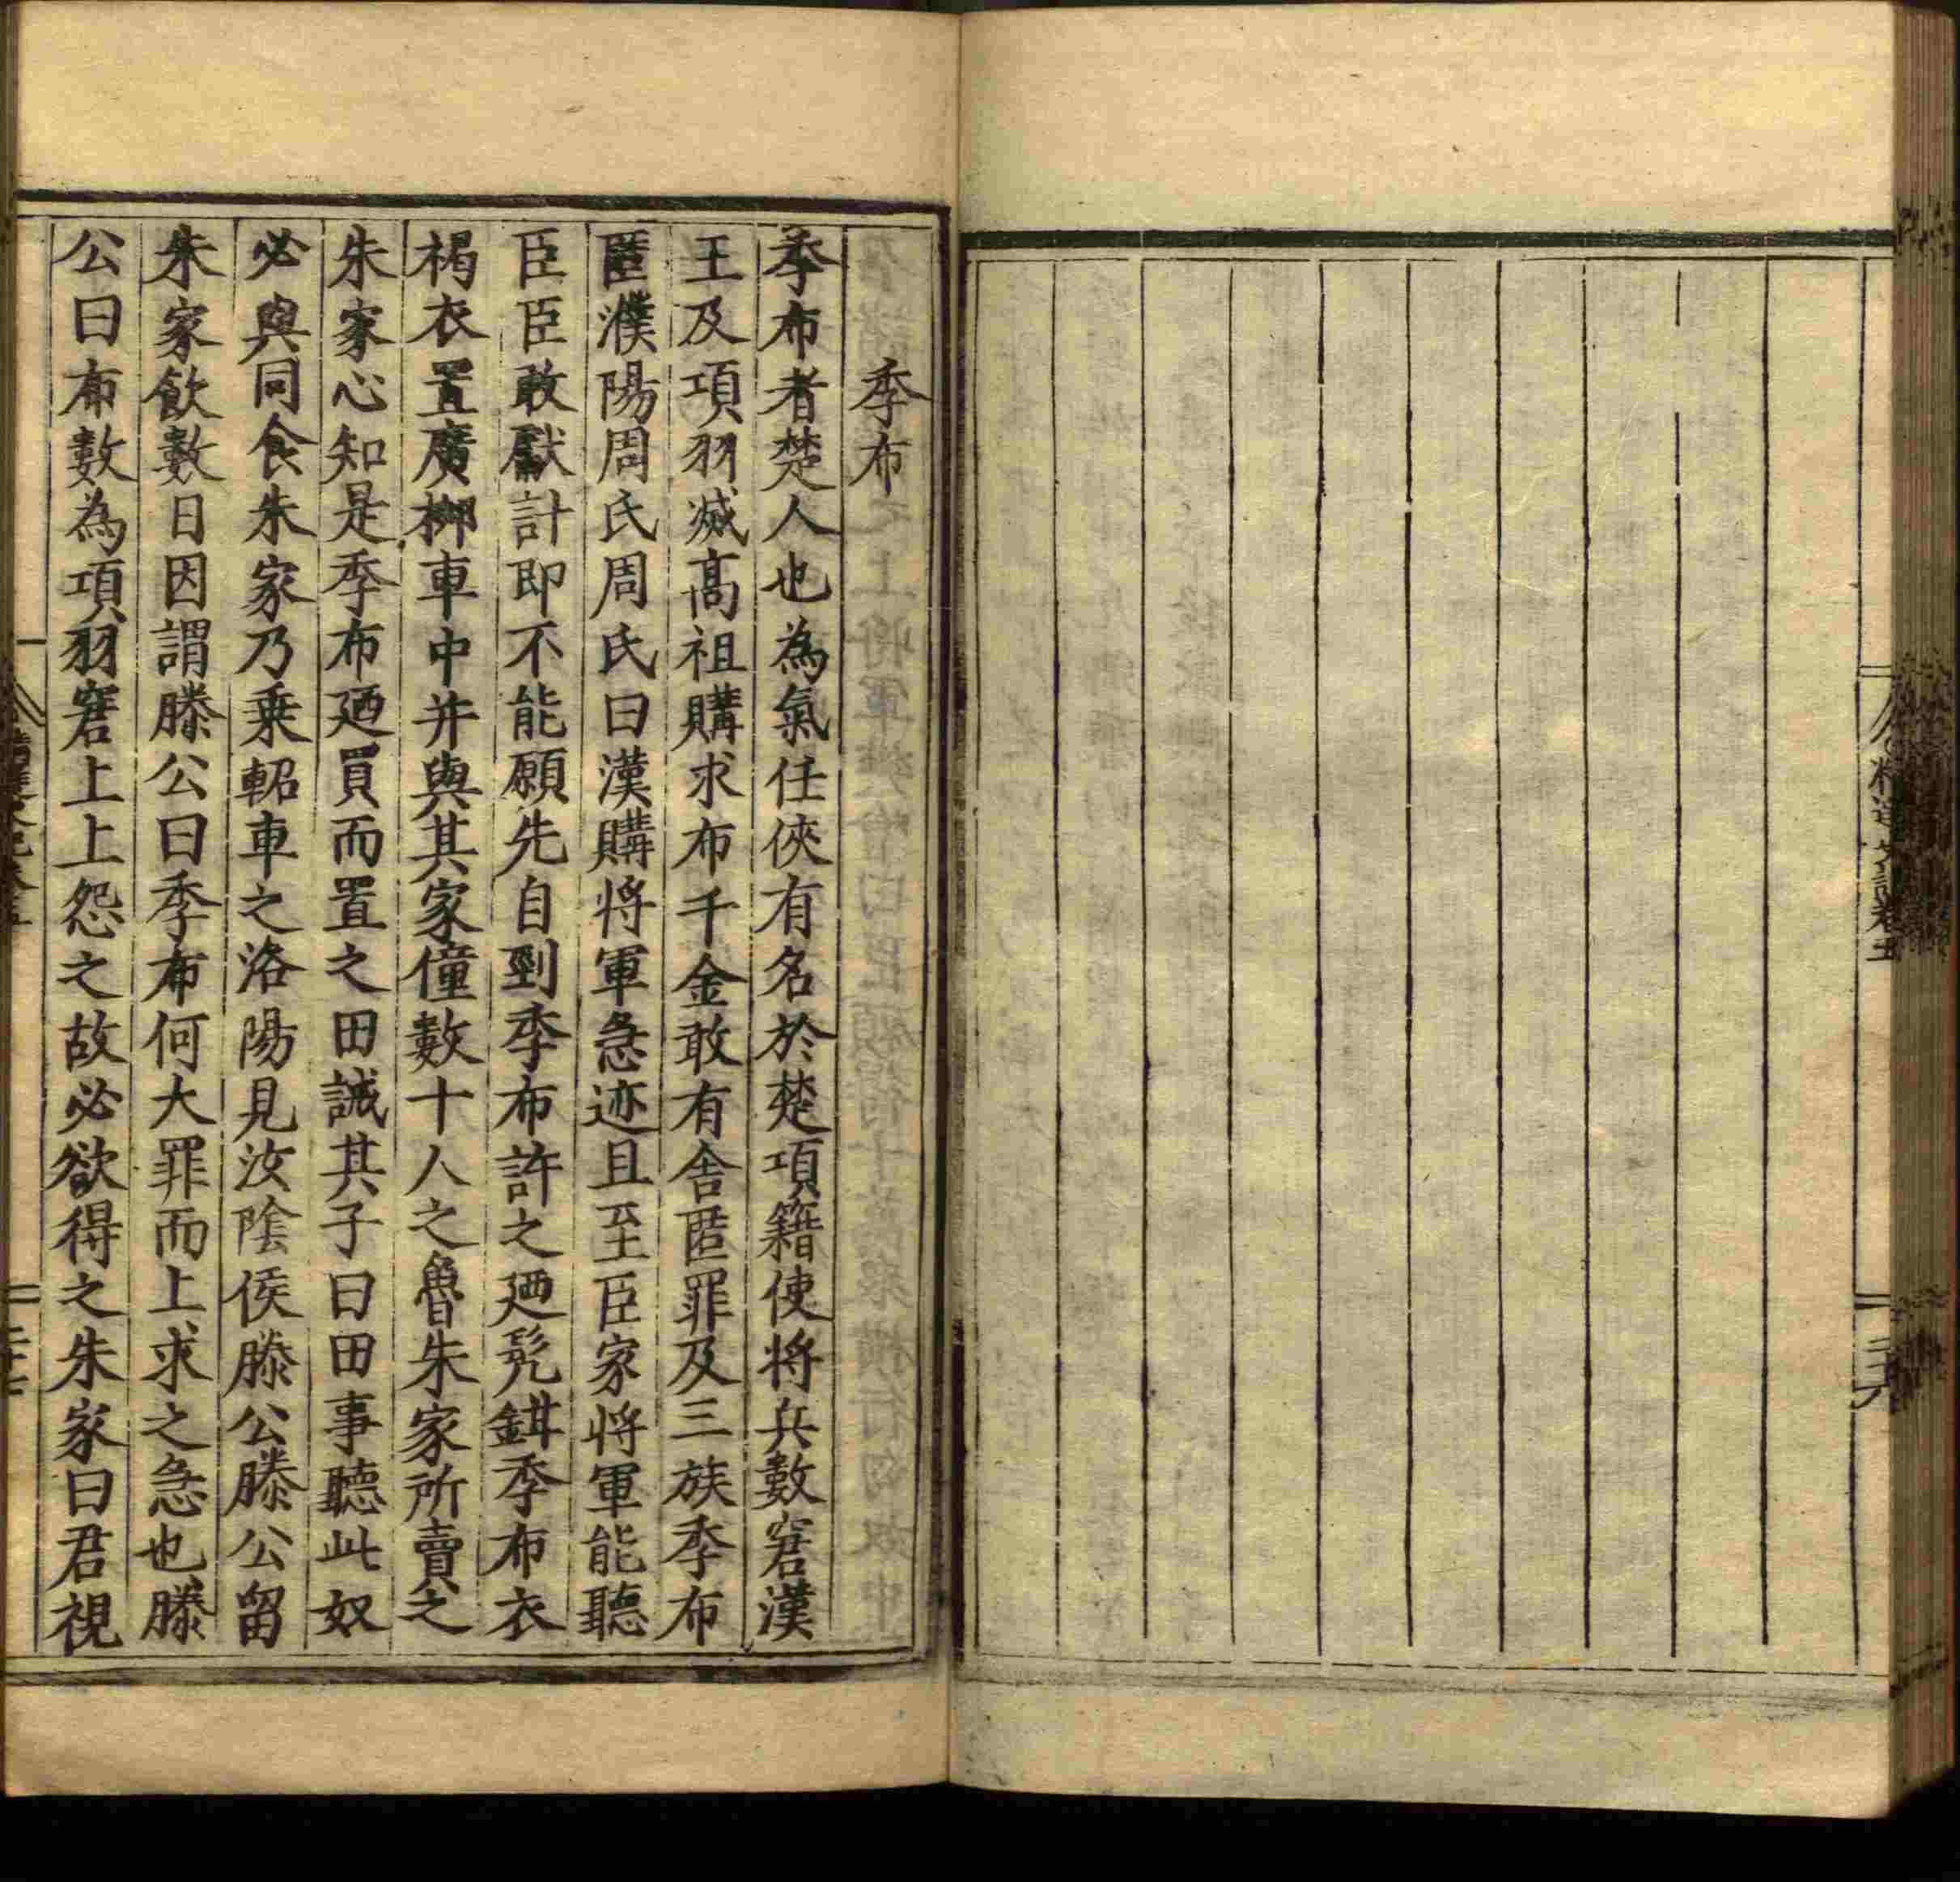 季布
季布者楚人也為氣任俠有名於楚項籍使將兵數窘漢
王及項羽滅高祖購求布千金敢有舍匿罪及三族季布
匿濮陽周氏周氏曰漢購將軍急迹且至臣家將軍能聽
臣臣敢獻計即不能願先自剄季布許之廼髠鉗季布衣
褐衣置廣栁車中并與其家僮數十人之魯朱家所賣之
朱家心知是季布廼買而置之田誡其子曰田事聽此奴
必與同食朱家乃乗軺車之洛陽見汝陰侯滕公滕公留
朱家飲數日因謂滕公曰季布何大罪而上求之急也滕
公曰布數為項羽窘上上怨之故必欲得之朱家曰君視